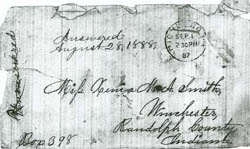 Answered
August 28, 1888.
SEP 1
2 30 PM
87
Miss Xenia Mock Smith,
Winchester,
Randolph County
Indiana
Box 398